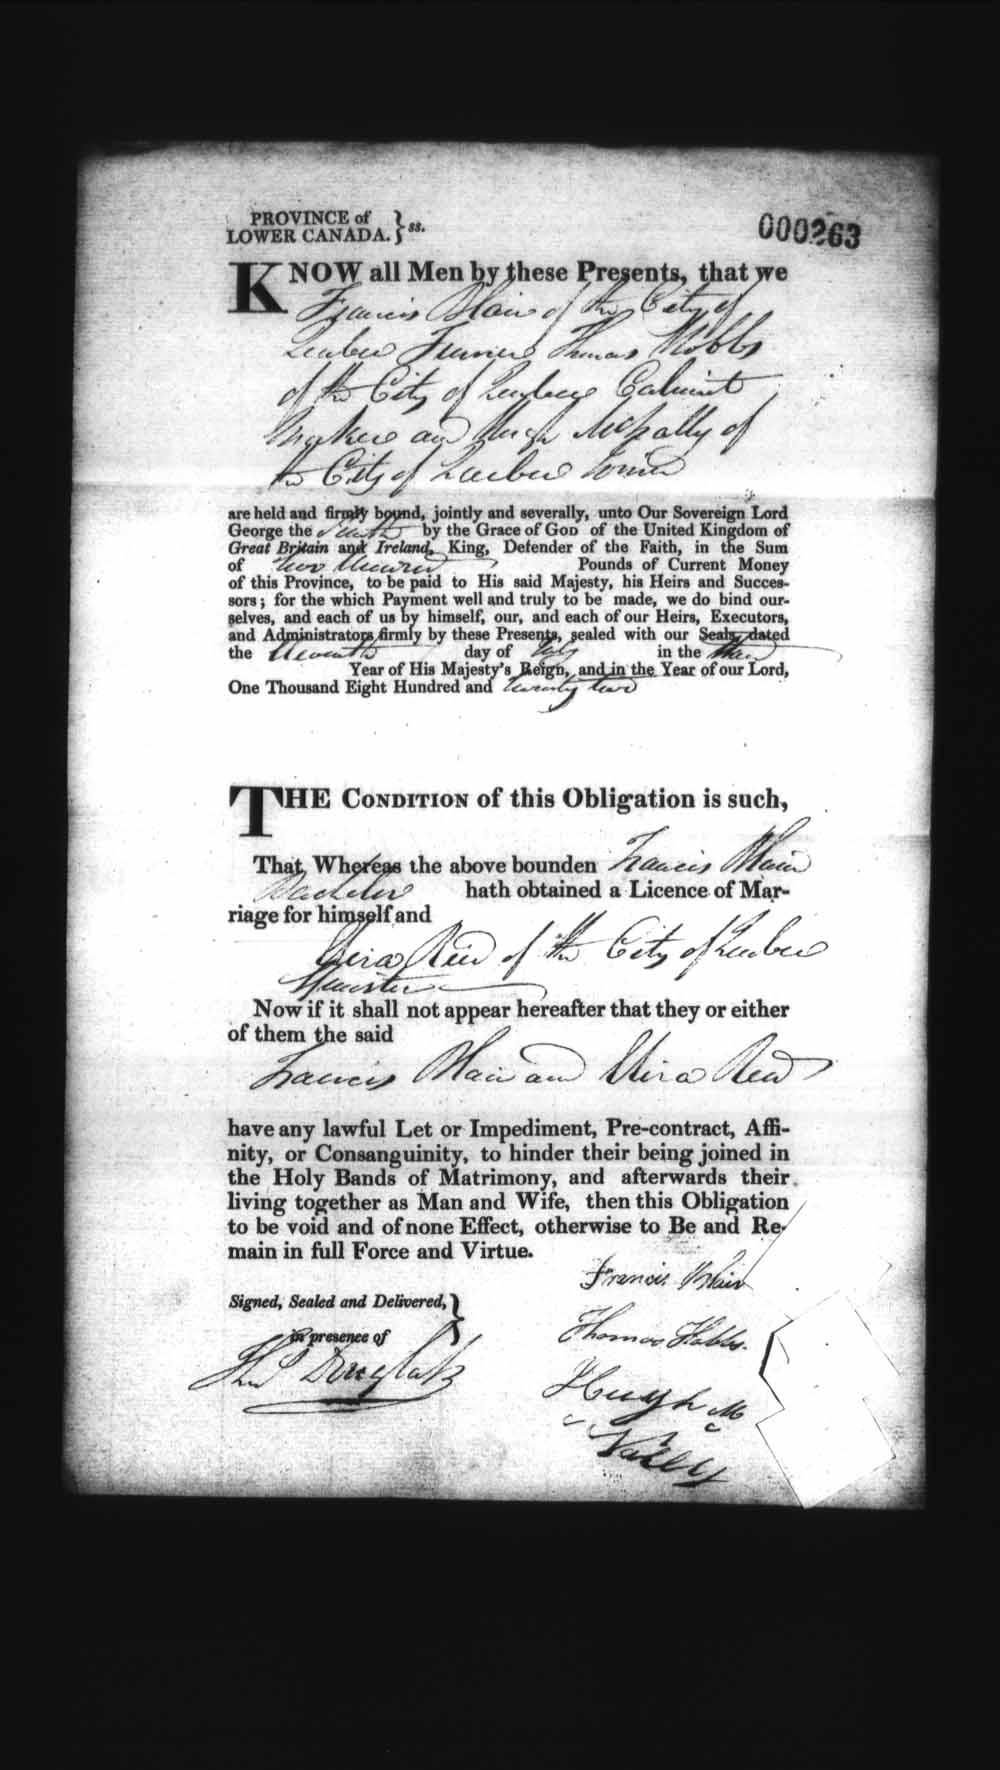 PROVINCE of
LOWER CANADA. } ss.
000263
KNOW all Men by these Presents, that we
Francis Blair of the City of
Quebec Thomas Hobbs
of the City of Quebec Cabinet
Maker and Hugh McNally of
the City of Quebec
are held and firmly bound, jointly and severally, unto Our Sovereign Lord
George the Fourth by the Grace of GOD of the United Kingdom of
Great Britain and Ireland, King, Defender of the Faith, in the Sum
of Two Hundred Pounds of Current Money
of this Province, to be paid to His said Majesty, his Heirs and Succes-
sors; for the which Payment well and truly to be made, we do bind our-
selves, and each of us by himself, our, and each of our Heirs, Executors,
and Administrators firmly by these Presents, sealed with our Seals, dated
the Eleventh day of July in the Third
Year of His Majesty's Reign, and in the Year of our Lord,
One Thousand Eight Hundred and twenty two
THE CONDITION of this Obligation is such,
That Whereas the above bounden Francis Blair
Bachelor hath obtained a Licence of Mar-
riage for himself and
Reid of the City of Quebec
Spinster
Now if it shall not appear hereafter that they or either
of them the said
Francis Blair and Reid
have any lawful Let or Impediment, Pre-contract, Affi-
nity, or Consanguinity, to hinder their being joined in
the Holy Bands of Matrimony, and afterwards their
living together as Man and Wife, then this Obligation
to be void and of none Effect, otherwise to Be and Re-
main in full Force and Virtue.
Francis Blair
Signed, Sealed and Delivered, }
in presence of
Thomas Hobbs.
Douglass
Hugh Mc
Nally